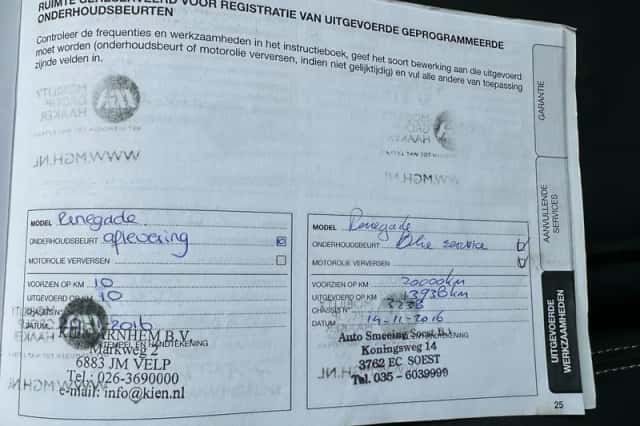 RUIMTE GERESERVEERD VOOR REGISTRATIE VAN UITGEVOERDE GEPROGRAMMEERDE
ONDERHOUDSBEURTEN
Controleer de frequenties en werkzaamheden in het instructieboek, geef het soort bewerking aan die uitgevoerd
moet worden (onderhoudsbeurt of motorolie verversen, indien niet gelijktijdig) en vul alle andere van toepassing
zijnde velden in.
MOBILITY
GROUP
HAAKER
WWW.MGH.NL
WWW.MGH.NL
GARANTIE
AANVULLENDE
SERVICES
UITGEVOERDE
WERKZAAMHEDEN
MODEL Renegade
ONDERHOUDSBEURT aflevering
MOTOROLIE VERVERSEN
VOORZIEN OP KM 10
UITGEVOERD OP KM 10
CHASSISN°
DATUM 2016
ARNHEM B.V.
Markweg 2
6883 JM VELP
Tel.: 026-3690000
e-mail: info@kien.nl
MODEL Renegade
ONDERHOUDSBEURT Olie service
MOTOROLIE VERVERSEN
VOORZIEN OP KM 20000km
UITGEVOERD OP KM 13938km
CHASSISN°
DATUM 14-11-2016
Auto Smeeing Soest B.V.
Koningsweg 14
3762 EC SOEST
Tel. 035 - 6039999
25